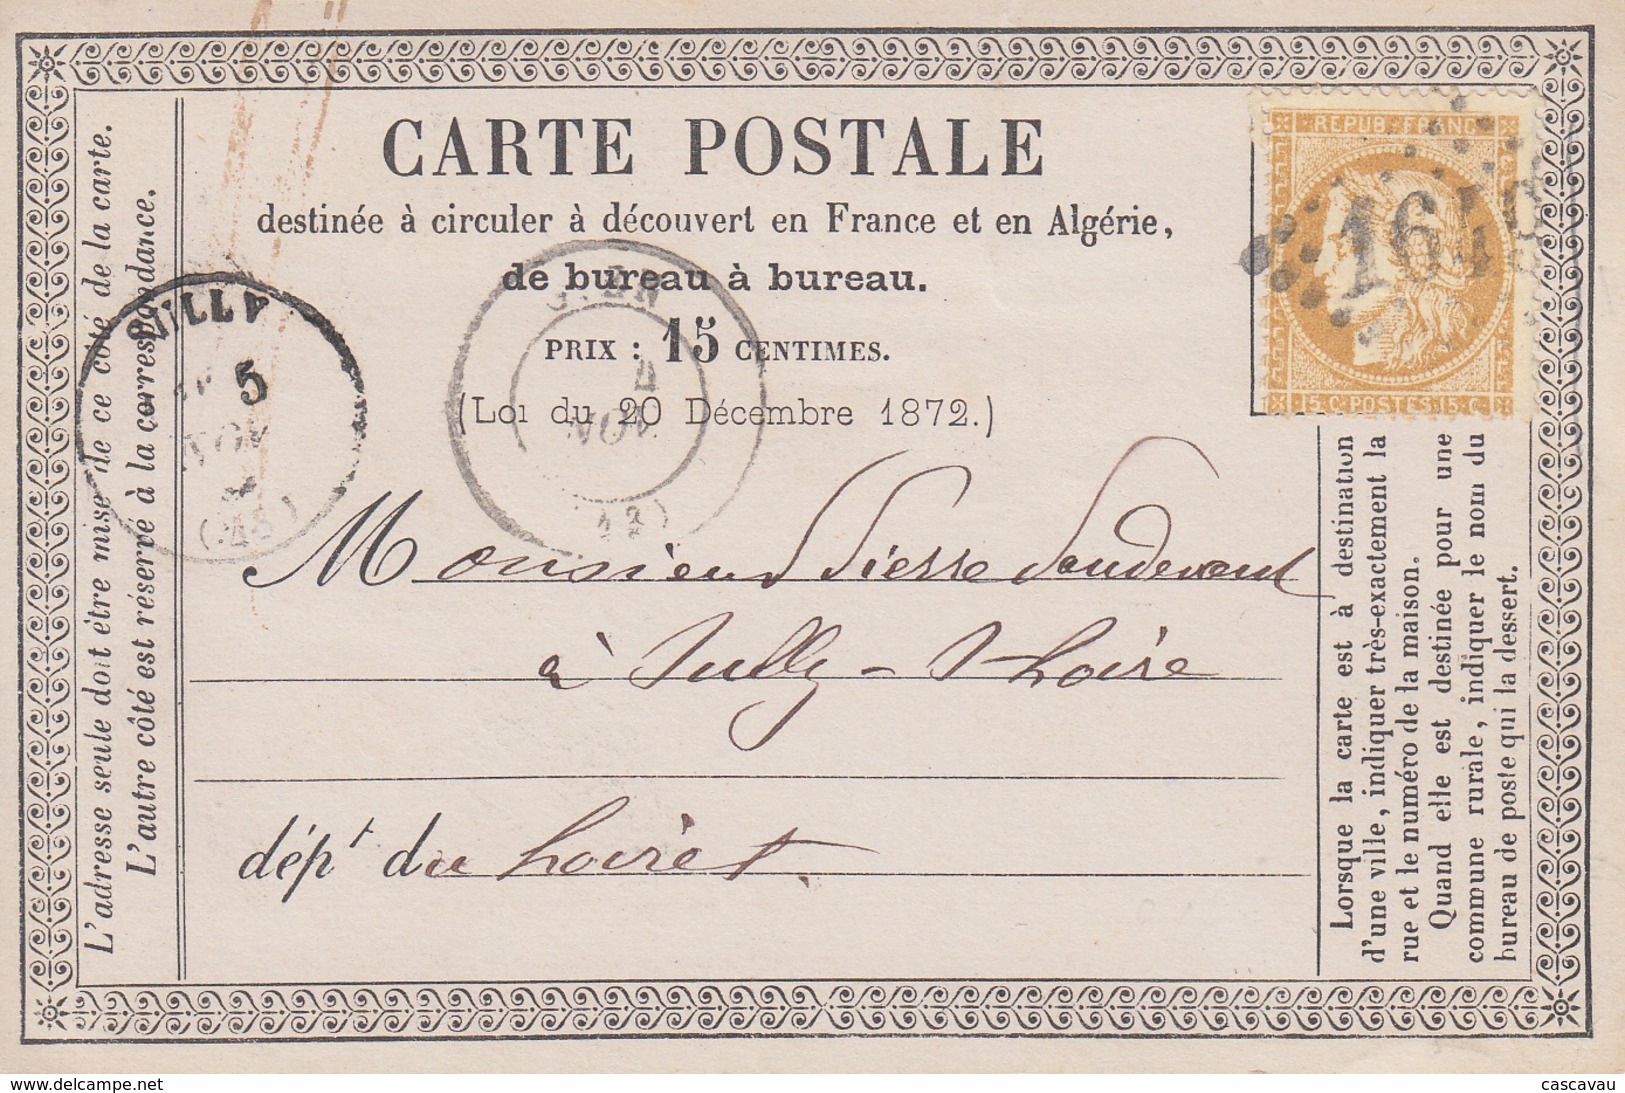 CARTE POSTALE
destinée à circuler à découvert en France et en Algérie,
de bureau à bureau.
PRIX : 15 CENTIMES.
(Loi du 20 Décembre 1872.)
REPUB. FRANC
1648
15 C. POSTES 15 C.
SULLY
5
NOV
(43)
GIEN
4
NOV
Monsieur Pierre
à Sully-s-Loire
dépt du Loiret.
L'adresse seule doit être mise de ce côté de la carte.
L'autre côté est réservé à la correspondance.
Lorsque la carte est à destination
d'une ville, indiquer très-exactement la
rue et le numéro de la maison.
Quand elle est destinée pour une
commune rurale, indiquer le nom du
bureau de poste qui la dessert.
www.delcampe.net
cascavau